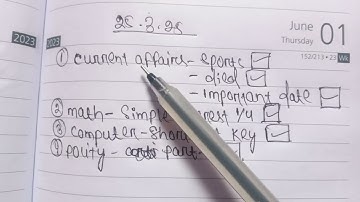 25.3.25
June 01
Thursday
152/213•23 Wk
2023
2023
① current affairs- sports ☑
- died ☑
- Important date ☑
② math- Simple 1/4 ☑
③ computer- key ☑
④ polity - part-